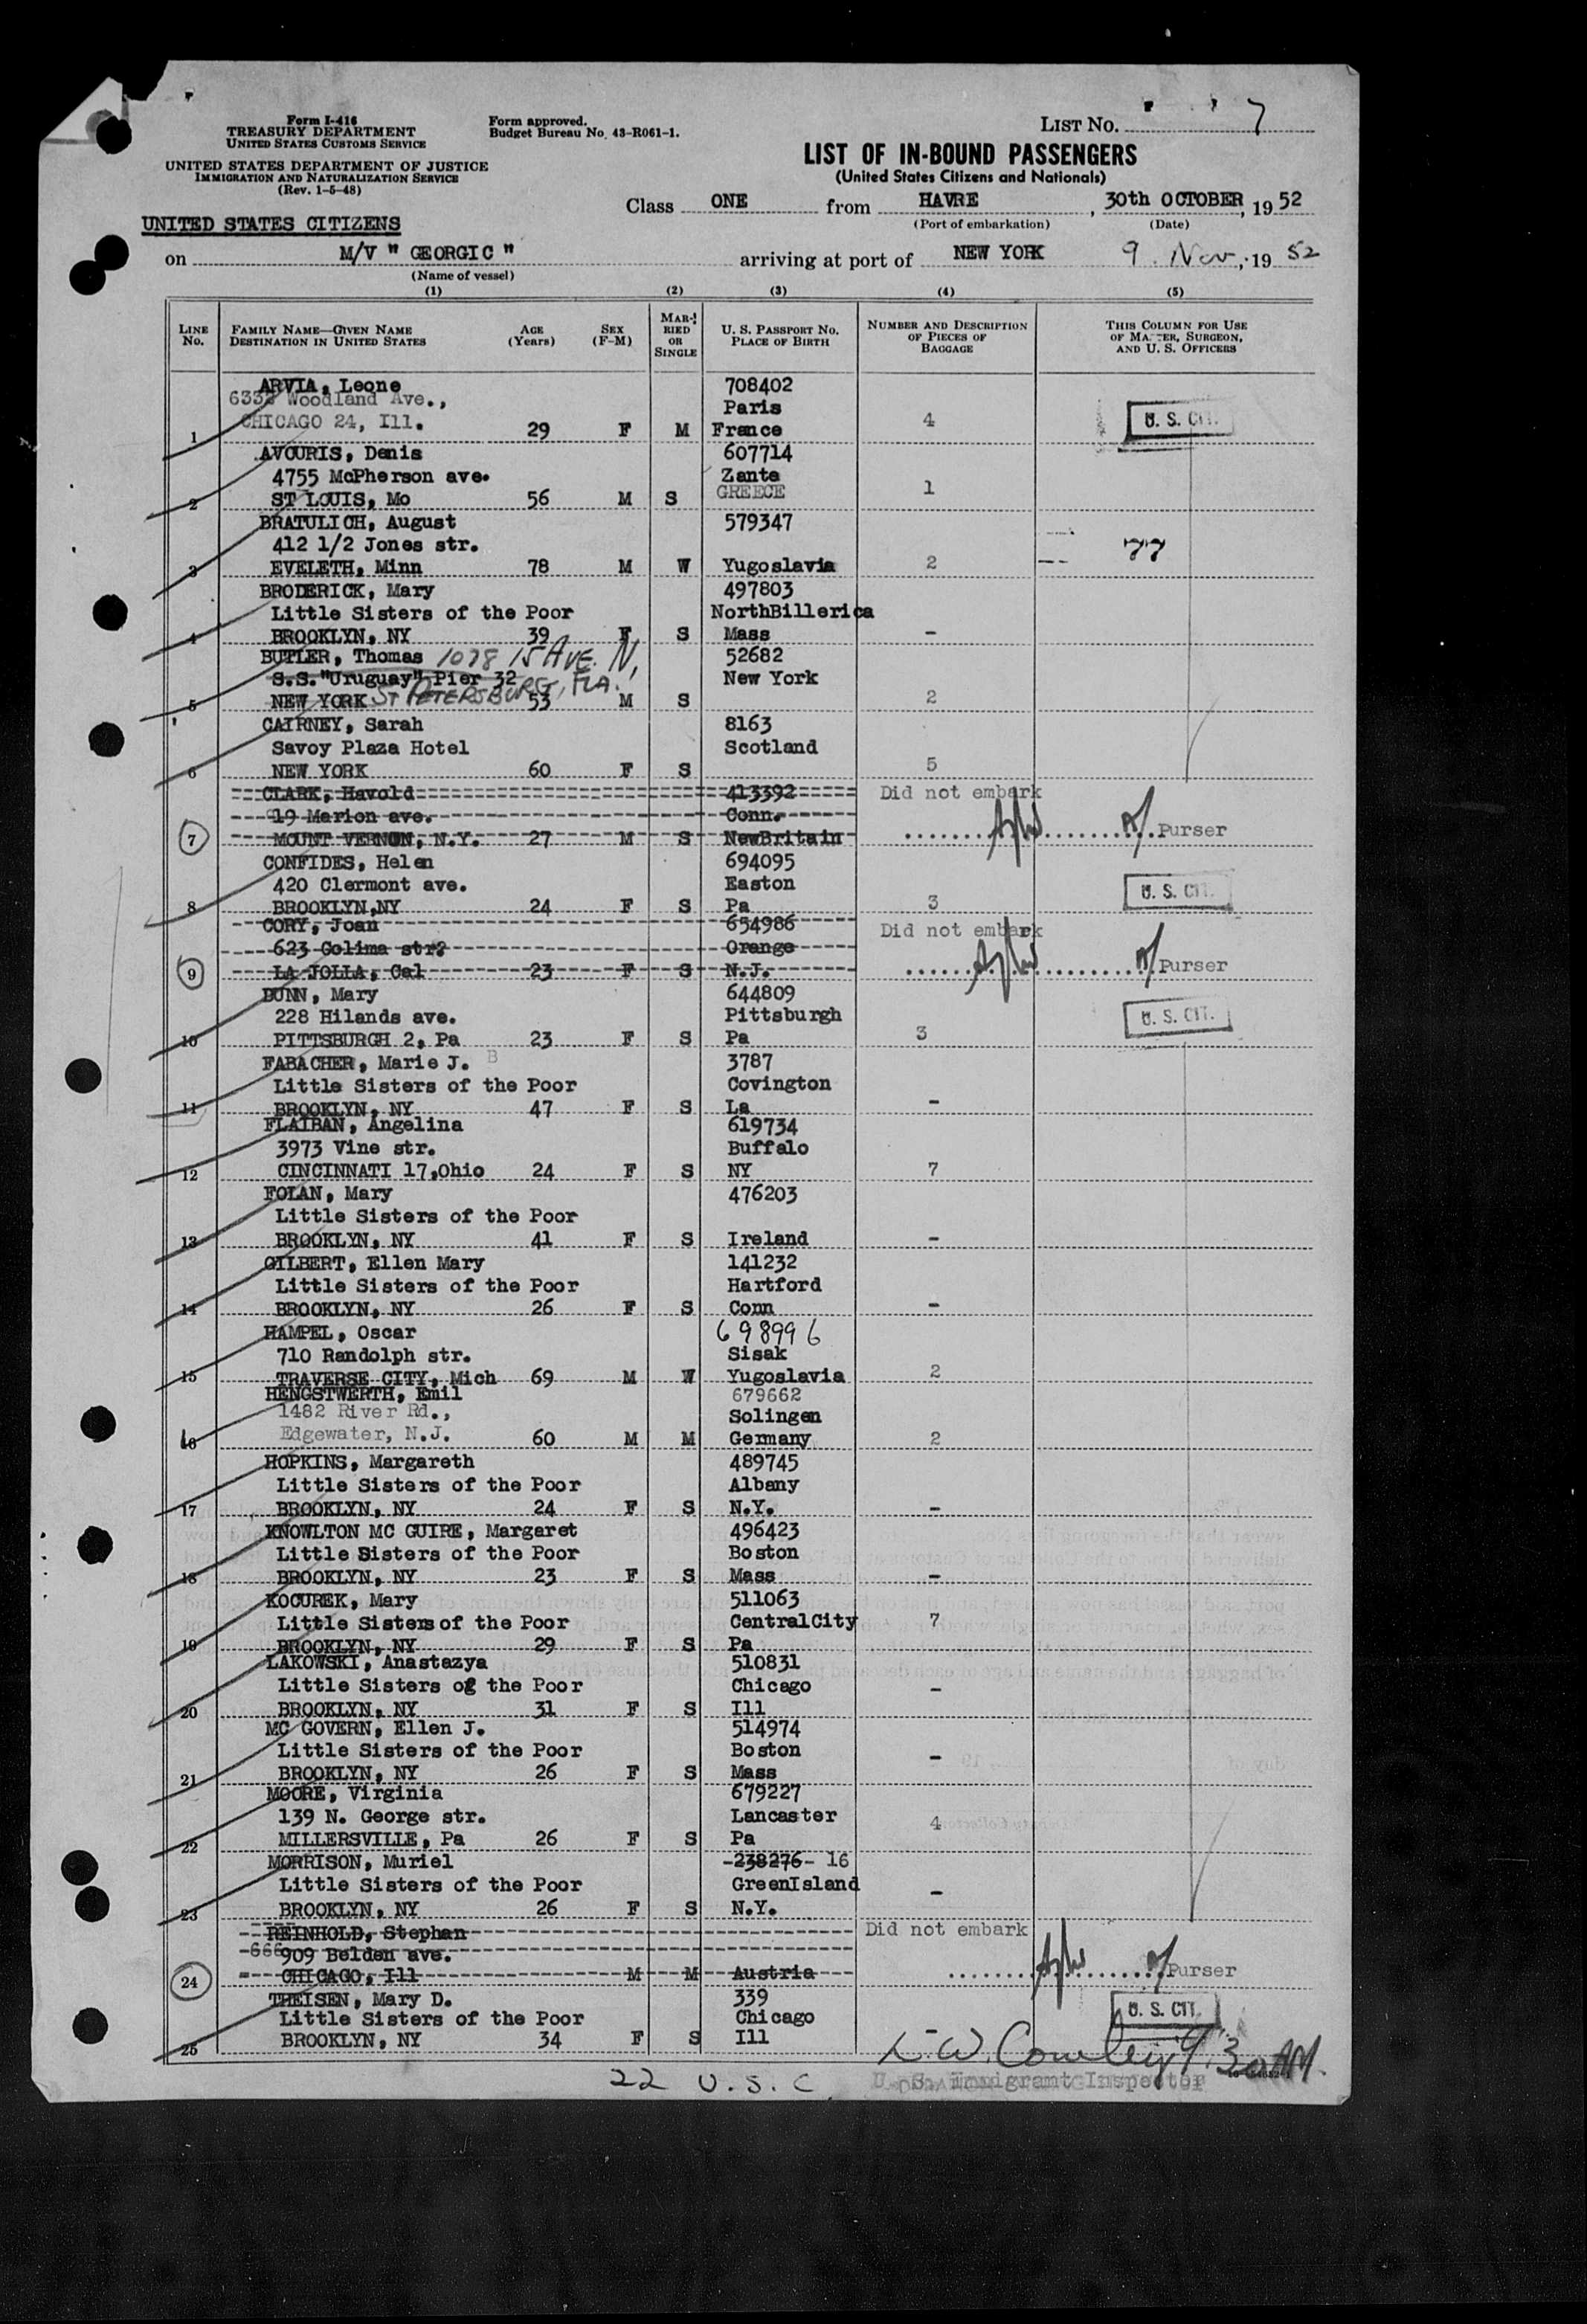 Form I-416
TREASURY DEPARTMENT
UNITED STATES CUSTOMS SERVICE
UNITED STATES DEPARTMENT OF JUSTICE
IMMIGRATION AND NATURALIZATION SERVICE
(Rev. 1-5-48)
Form approved.
Budget Bureau No. 43-R061-1.
LIST No. 7
LIST OF IN-BOUND PASSENGERS
(United States Citizens and Nationals)
Class ONE from HAVRE, 30th OCTOBER, 1952
(Port of embarkation) (Date)
UNITED STATES CITIZENS
on M/V " GEORGIC " arriving at port of NEW YORK 9 Nov, 1952
(Name of vessel)
(1) (2) (3) (4) (5)
LINE No. FAMILY NAME—GIVEN NAME DESTINATION IN UNITED STATES AGE (Years) SEX (F-M) MARRIED OR SINGLE U. S. PASSPORT NO. PLACE OF BIRTH NUMBER AND DESCRIPTION OF PIECES OF BAGGAGE THIS COLUMN FOR USE OF MASTER, SURGEON, AND U. S. OFFICERS
ARVIA, Leone 708402
Woodland Ave., Paris
1 CHICAGO 24, Ill. 29 F M France 4 U. S. CIT.
AVOURIS, Denis 607714
4755 McPherson ave. Zante
2 ST LOUIS, Mo 56 M S GREECE 1
BRATULICH, August 579347
412 1/2 Jones str.
3 EVELETH, Minn 78 M W Yugoslavia 2 77
BRODERICK, Mary 497803
Little Sisters of the Poor NorthBillerica
4 BROOKLYN, NY 39 F S Mass -
BUTLER, Thomas 1078 15 AVE. N, 52682
S.S."Uruguay" Pier 32 New York
5 NEW YORK ST PETERSBURG, FLA. 53 M S 2
CAIRNEY, Sarah 8163
Savoy Plaza Hotel Scotland
6 NEW YORK 60 F S 5
CLARK, Havold 413392 Did not embark
19 Marion ave. Conn.
7 MOUNT VERNON, N.Y. 27 M S NewBritain Purser
CONFIDES, Helen 694095
420 Clermont ave. Easton
8 BROOKLYN,NY 24 F S Pa 3 U. S. CIT.
CORY, Joan 654986 Did not embark
623 Colima str? Orange
9 LA JOLLA, Cal 23 F S N.J. Purser
DUNN, Mary 644809
228 Hilands ave. Pittsburgh
10 PITTSBURGH 2, Pa 23 F S Pa 3 U. S. CIT.
FABACHER, Marie J. B 3787
Little Sisters of the Poor Covington
11 BROOKLYN, NY 47 F S La -
FLAIBAN, Angelina 619734
3973 Vine str. Buffalo
12 CINCINNATI 17,Ohio 24 F S NY 7
FOLAN, Mary 476203
Little Sisters of the Poor
13 BROOKLYN, NY 41 F S Ireland -
GILBERT, Ellen Mary 141232
Little Sisters of the Poor Hartford
14 BROOKLYN, NY 26 F S Conn -
HAMPEL, Oscar 698996
710 Randolph str. Sisak
15 TRAVERSE CITY, Mich 69 M W Yugoslavia 2
HENGSTWERTH, Emil 679662
1482 River Rd., Solingen
16 Edgewater, N.J. 60 M M Germany 2
HOPKINS, Margareth 489745
Little Sisters of the Poor Albany
17 BROOKLYN, NY 24 F S N.Y. -
KNOWLTON MC GUIRE, Margaret 496423
Little Sisters of the Poor Boston
18 BROOKLYN, NY 23 F S Mass -
KOCUREK, Mary 511063
Little Sisters of Poor CentralCity
19 BROOKLYN, NY 29 F S Pa 7
LAKOWSKI, Anastazya 510831
Little Sisters of the Poor Chicago
20 BROOKLYN, NY 31 F S Ill -
MC GOVERN, Ellen J. 514974
Little Sisters of the Poor Boston
21 BROOKLYN, NY 26 F S Mass -
MOORE, Virginia 679227
139 N. George str. Lancaster
22 MILLERSVILLE, Pa 26 F S Pa 4
MORRISON, Muriel 238276 - 16
Little Sisters of the Poor GreenIsland
23 BROOKLYN, NY 26 F S N.Y. -
REINHOLD, Stephan Did not embark
909 Belden ave.
24 CHICAGO, Ill M M Austria Purser
THEISEN, Mary D. 339
Little Sisters of the Poor Chicago U. S. CIT.
25 BROOKLYN, NY 34 F S Ill
L.W. Conley 9:30 AM.
22 U.S.C. U. S. Immigrant Inspector